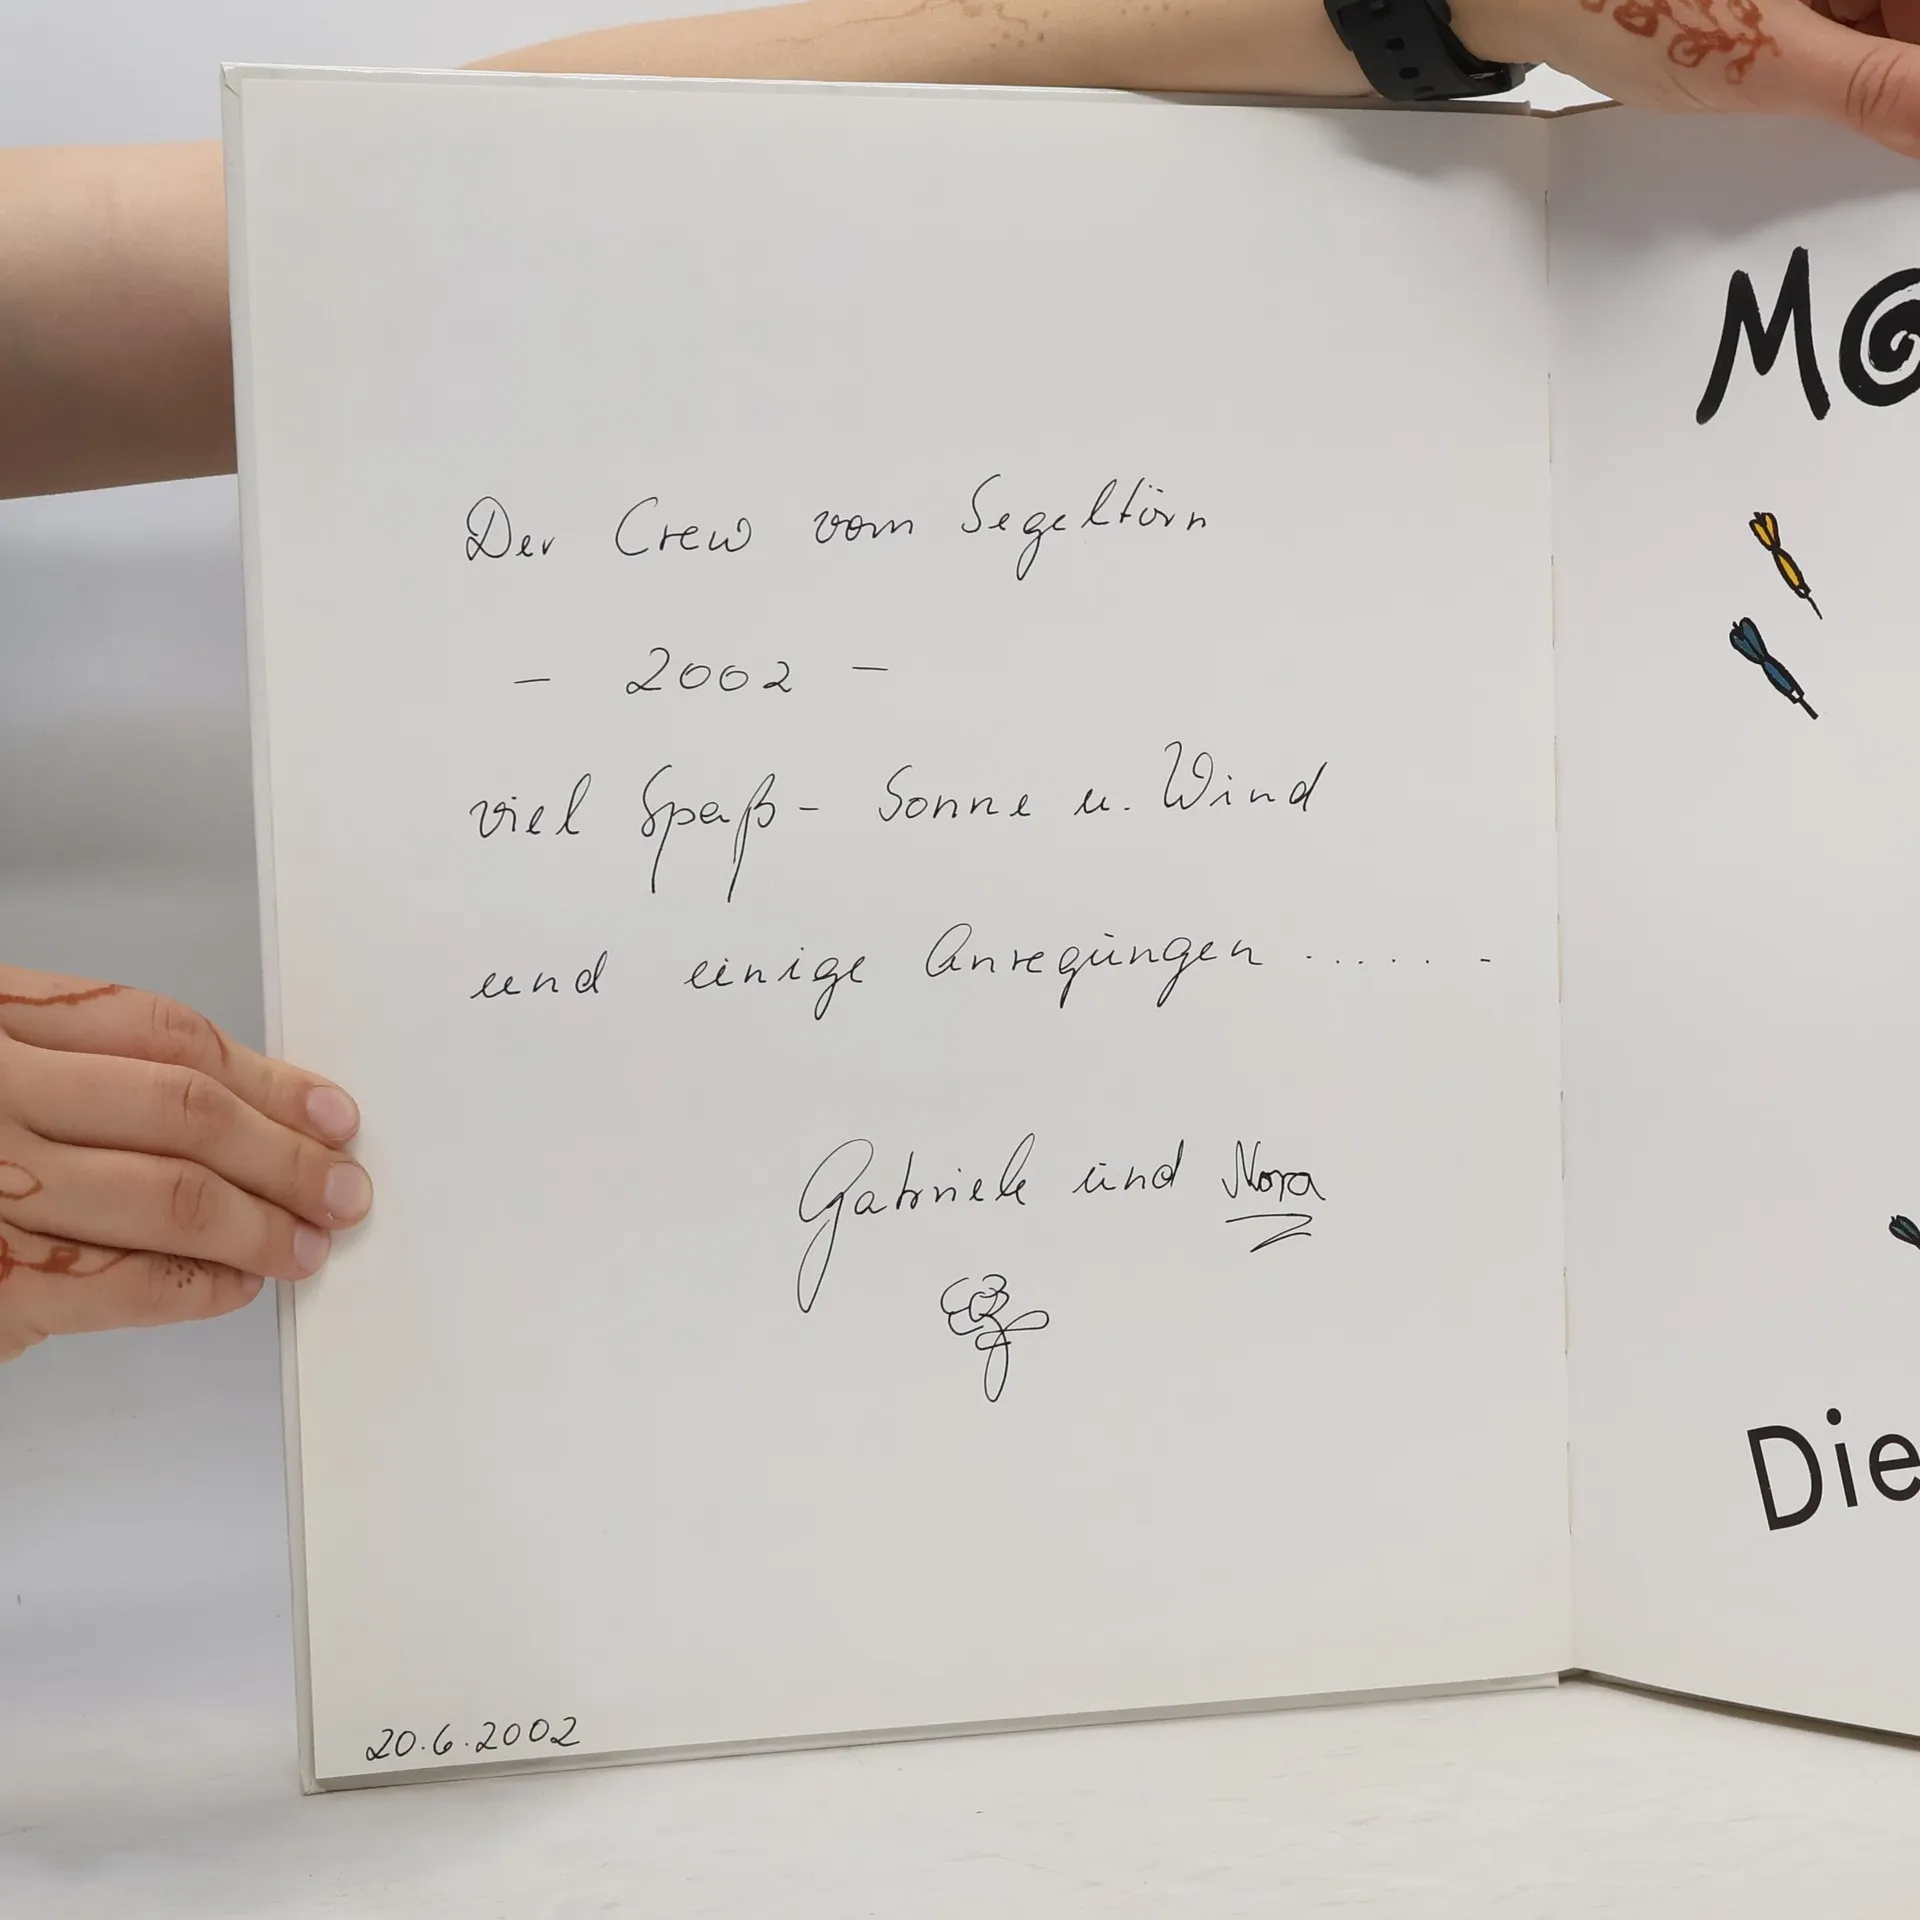 Der Crew vom Segeltörn
– 2002 –
viel Spaß – Sonne u. Wind
und einige Anregungen .......
Gabriele und Nora
20.6.2002
Die